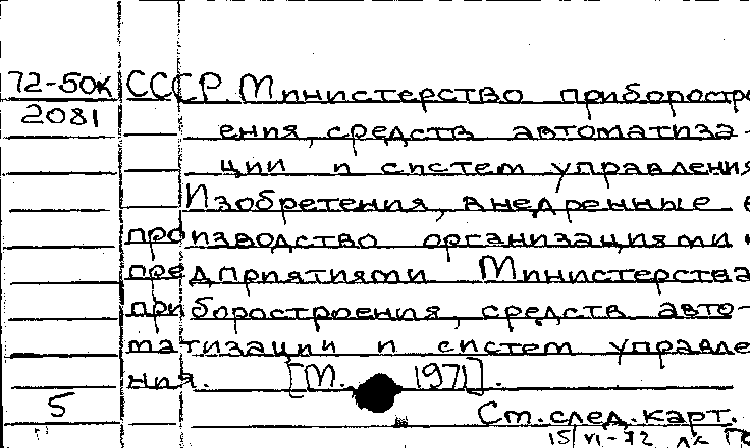 72-50к СССР. Министерство приборостро
2081 ения, средств автоматиза-
ции и систем управления
Изобретения, внедренные в
производство организациями и
предприятиями Министерства
приборостроения, средств авто-
матизации и систем управле
ния. [М. 1971].
5 См. след. карт.
15/VI-72